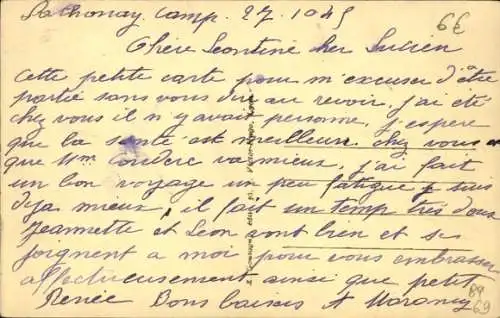 Sathonay Camp. 27. 10 45
6€
Chère Leontine cher Lucien
Cette petite carte pour m'excuser d'être
partie sans vous dire au revoir, j'ai été
chez vous il n'y avait personne, j'espere
que la santé est meilleure chez vous
que Mme Couderc va mieux, j'ai fait
un bon voyage un peu fatigué je suis
deja mieux, il fait un temps très doux
Jeannette et Leon vont bien et se
joignent a moi pour vous embrasser
affectueusement ainsi que petit
Renée Bons baisers A
89
69